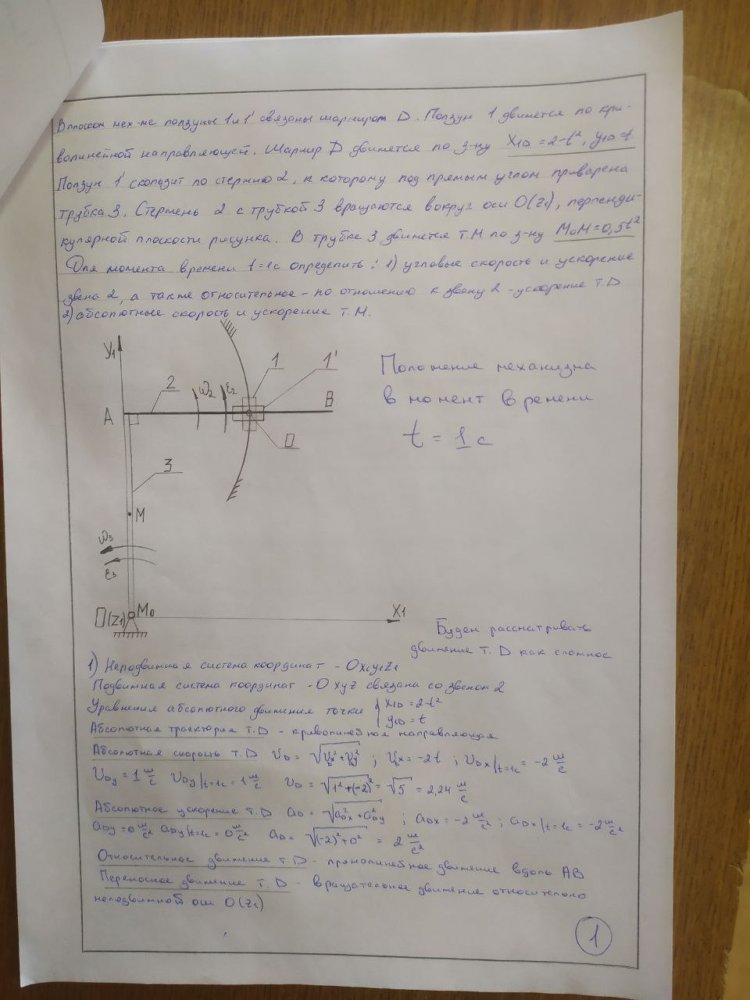 В плоском мех-ме ползуны 1 и 1' связаны шарниром D. Ползун 1 движется по кри-
волинейной направляющей. Шарнир D движется по з-ну X1D = 2-t², y1D = t
Ползун 1' скользит по стержню 2, к которому под прямым углом приварена
трубка 3. Стержень 2 с трубкой 3 вращаются вокруг оси O(Z1), перпенди-
кулярной плоскости рисунка. В трубке 3 движется т.М по з-ну M₀M = 0,5t²
Для момента времени t=1c определить: 1) угловые скорость и ускорение
звена 2, а также относительное - по отношению к звену 2 - ускорение т.D
2) абсолютные скорость и ускорение т.М.
Y1
1
1'
2
ω2
ε2
A
B
D
3
M
ω3
ε3
O(Z1)
M₀
X1
Положение механизма
в момент времени
t = 1 c
Будем рассматривать
движение т. D как сложное
1) Неподвижная система координат - Ox1y1z1
Подвижная система координат - Oxyz связана со звеном 2
Уравнения абсолютного движения точки { X1D = 2-t²
y1D = t
Абсолютная траектория т.D - криволинейная направляющая
Абсолютная скорость т.D υD = √(υx²+υy²) ; υx = -2t ; υDx/t=1c = -2 м/с
υDy = 1 м/с υDy/t=1c = 1 м/с υD = √(1²+(-2)²) = √5 = 2,24 м/с
Абсолютное ускорение т.D aD = √(a²Dx+a²Dy) ; aDx = -2 м/с² ; aDx/t=1c = -2 м/с²
aDy = 0 м/с² aDy/t=1c = 0 м/с² aD = √((-2)²+0²) = 2 м/с²
Относительное движение т.D - прямолинейное движение вдоль AB
Переносное движение т.D - вращательное движение относительно
неподвижной оси O(Z1)
1